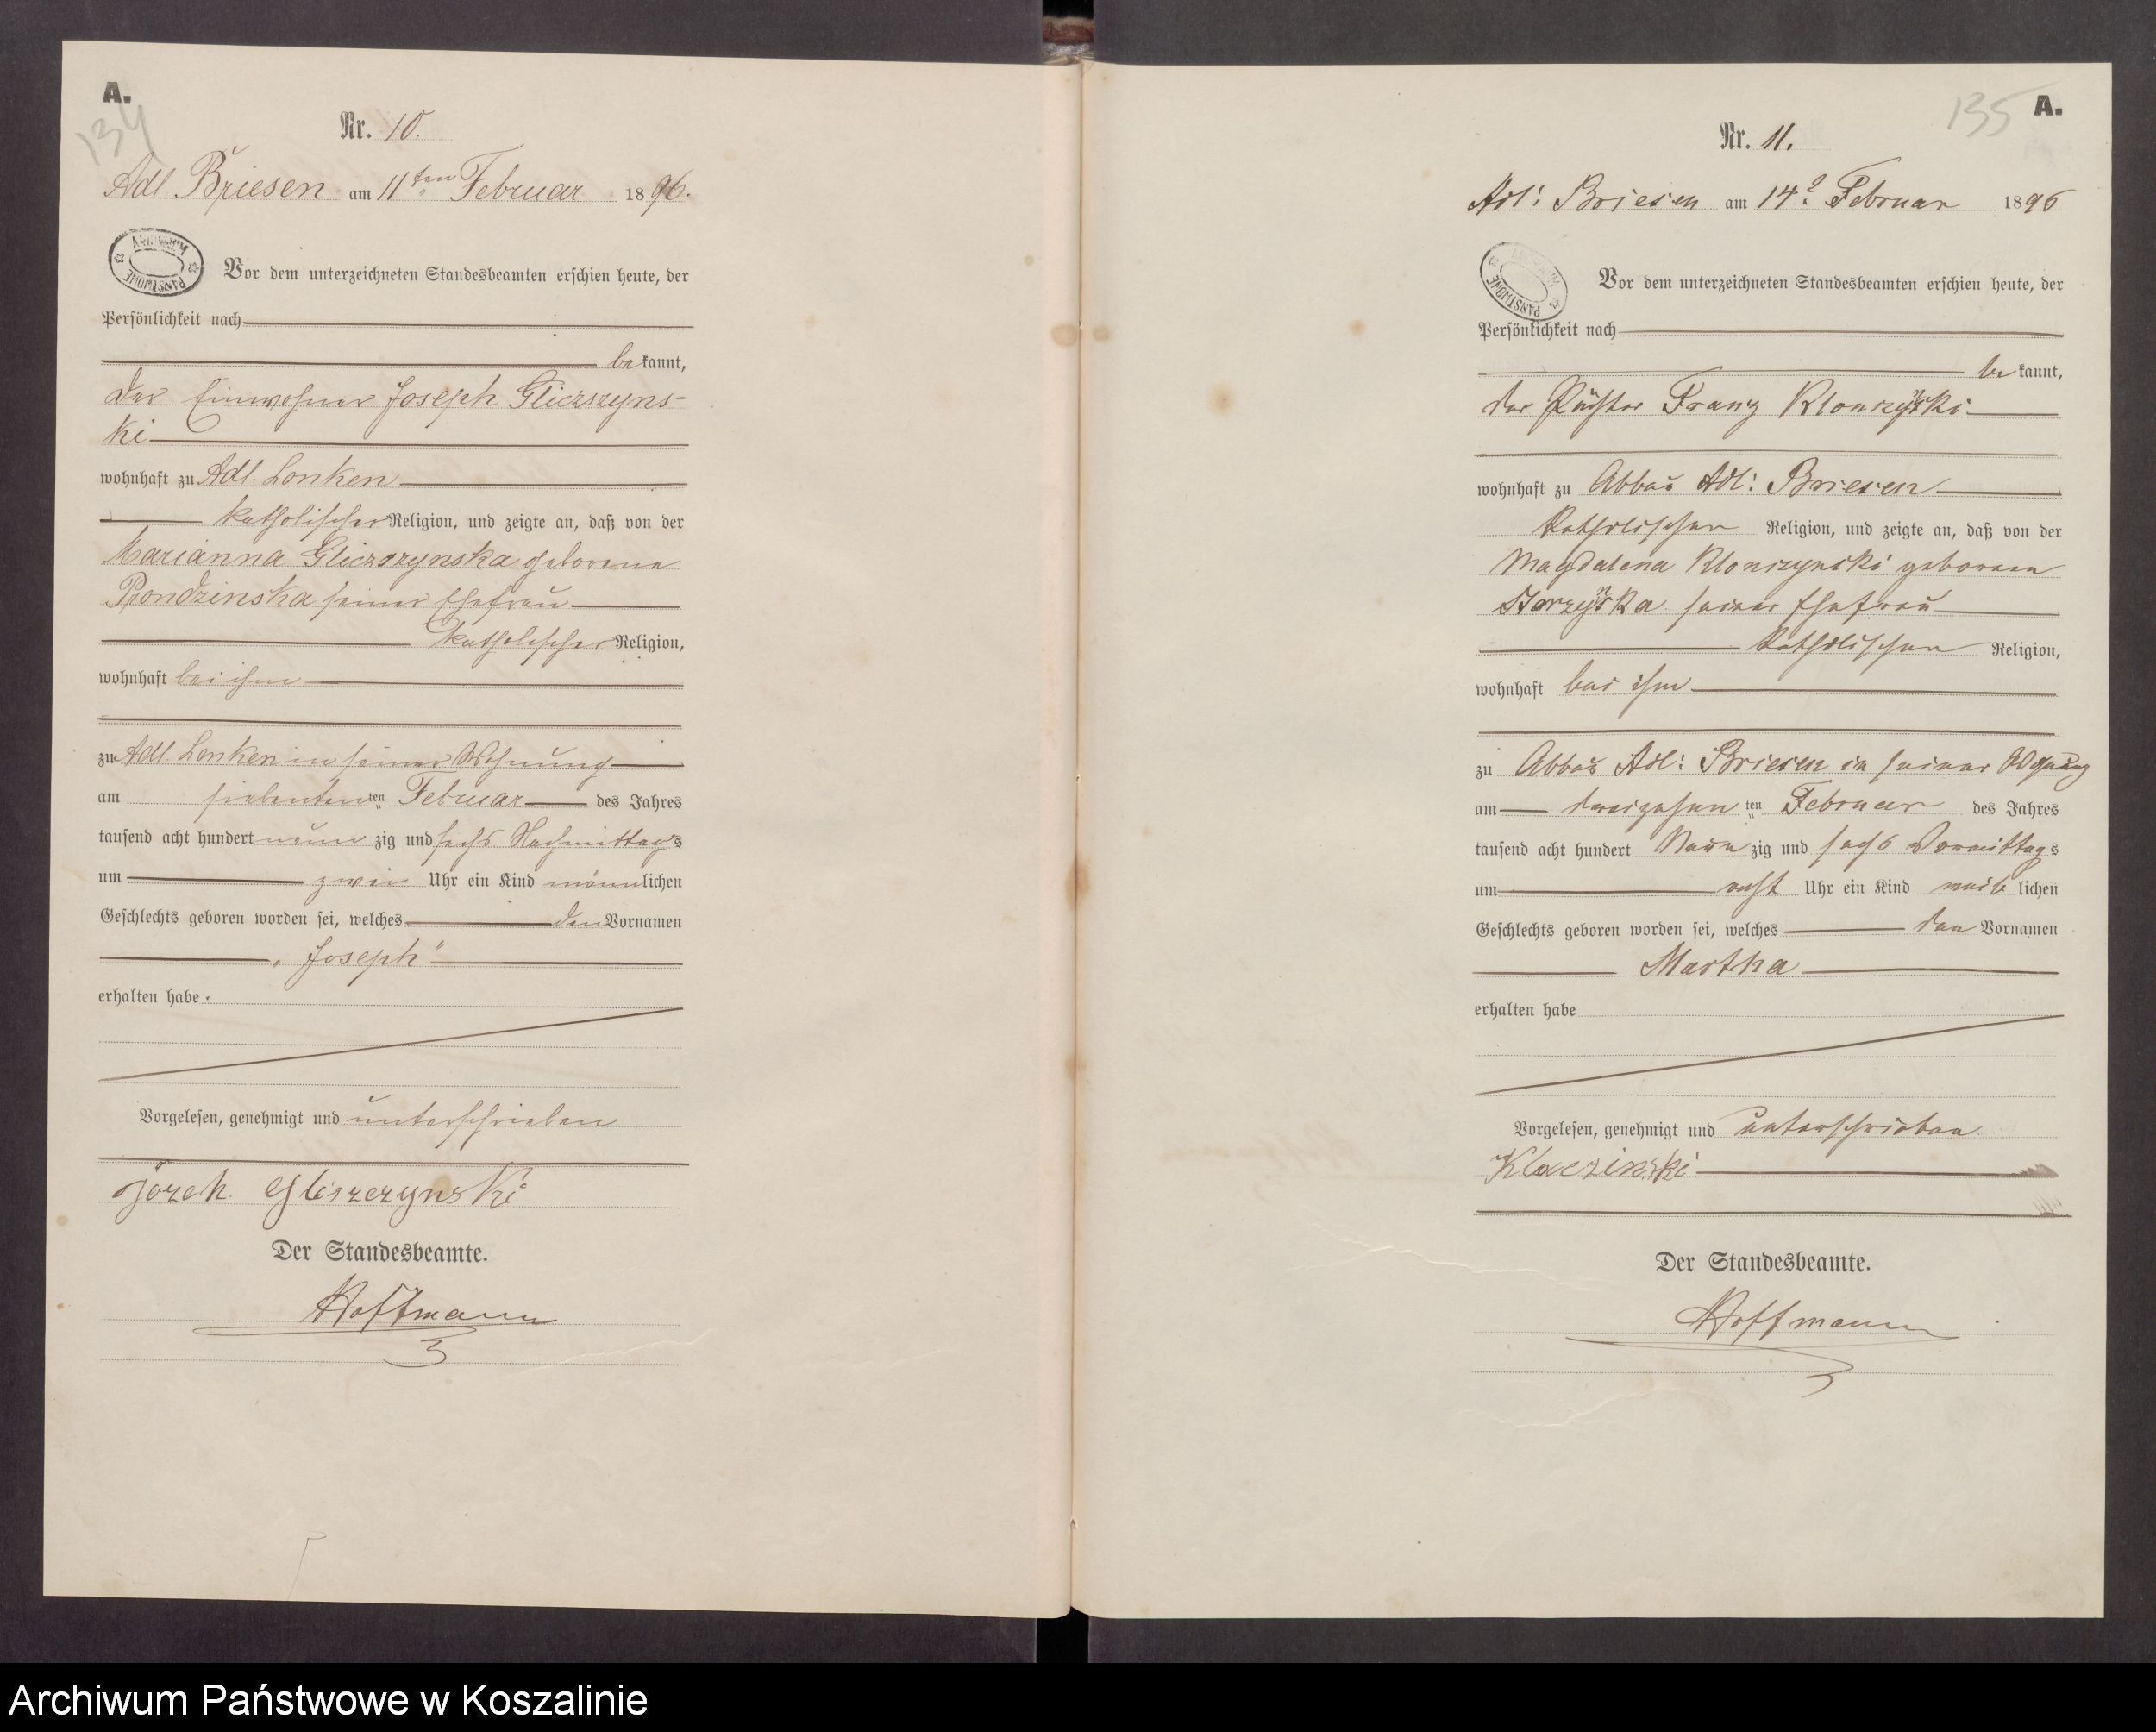 A.
134
Nr. 10.
Adl Briesen am 11ten Februar 1896.
ARCHIWUM PAŃSTWOWE
Vor dem unterzeichneten Standesbeamten erschien heute, der
Persönlichkeit nach
bekannt,
der Einwohner Joseph Gliczszyns-
ki
wohnhaft zu Adl. Lonken
katholischer Religion, und zeigte an, daß von der
Marianna Gliczszynska geborene
Prondzinska seiner Ehefrau
katholischer Religion,
wohnhaft bei ihm
zu Adl. Lonken in seiner Wohnung
am siebenten ten Februar des Jahres
tausend acht hundert neun zig und sechs Nachmittags
um zwei Uhr ein Kind männlichen
Geschlechts geboren worden sei, welches den Vornamen
„Joseph"
erhalten habe.
Vorgelesen, genehmigt und unterschrieben
Jözek Gliszczynski
Der Standesbeamte.
Hoffmann
135
A.
Nr. 11.
Adl: Briesen am 14t Februar 1896
PAŃSTWOWE
Vor dem unterzeichneten Standesbeamten erschien heute, der
Persönlichkeit nach
be kannt,
der Pächter Franz Klonczynski
wohnhaft zu Abbau Adl: Briesen
katholischen Religion, und zeigte an, daß von der
Magdalena Klonczynski geborenen
seiner Ehefrau
katholischen Religion,
wohnhaft bei ihm
zu Abbau Adl: Briesen in seiner Wohnung
am dreizehnten ten Februar des Jahres
tausend acht hundert Neun zig und sechs Vormittags
um acht Uhr ein Kind weib lichen
Geschlechts geboren worden sei, welches den Vornamen
Martha
erhalten habe
Vorgelesen, genehmigt und unterschrieben
Klaczinski
Der Standesbeamte.
Hoffmann
Archiwum Państwowe w Koszalinie